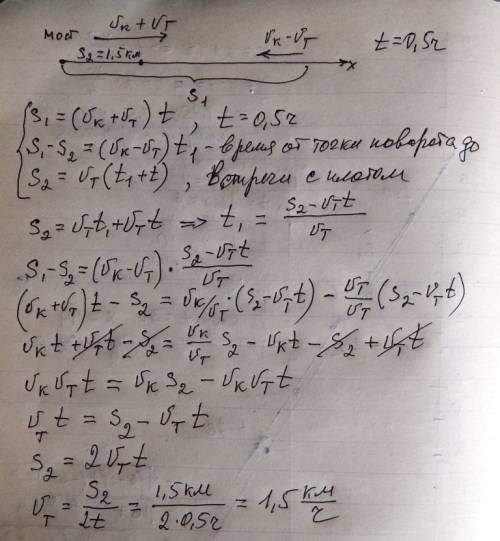 мост υк + υт υк − υт t = 0,5ч
S₂ = 1,5 км x
S₁
S₁ = (υк + υт) t , t = 0,5ч
S₁ − S₂ = (υк − υт) t₁ - время от точки поворота до
S₂ = υт (t₁ + t) , встречи с плотом
S₂ = υт t₁ + υт t => t₁ = (S₂ − υт t)/υт
S₁ − S₂ = (υк − υт) · (S₂ − υт t)/υт
(υк + υт) t − S₂ = υк/υт · (S₂ − υт t) − υт/υт (S₂ − υт t)
υк t + υт t − S₂ = υк/υт S₂ − υк t − S₂ + υт t
υк υт t = υк S₂ − υк υт t
υт t = S₂ − υт t
S₂ = 2 υт t
υт = S₂/2t = 1,5 км/2·0,5ч = 1,5 км/ч